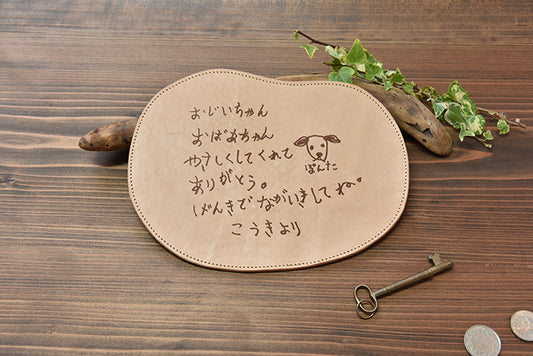 おじいちゃん
おばあちゃん
やさしくしてくれて
ありがとう。
げんきでながいきしてね。
こうきより
ぽんた